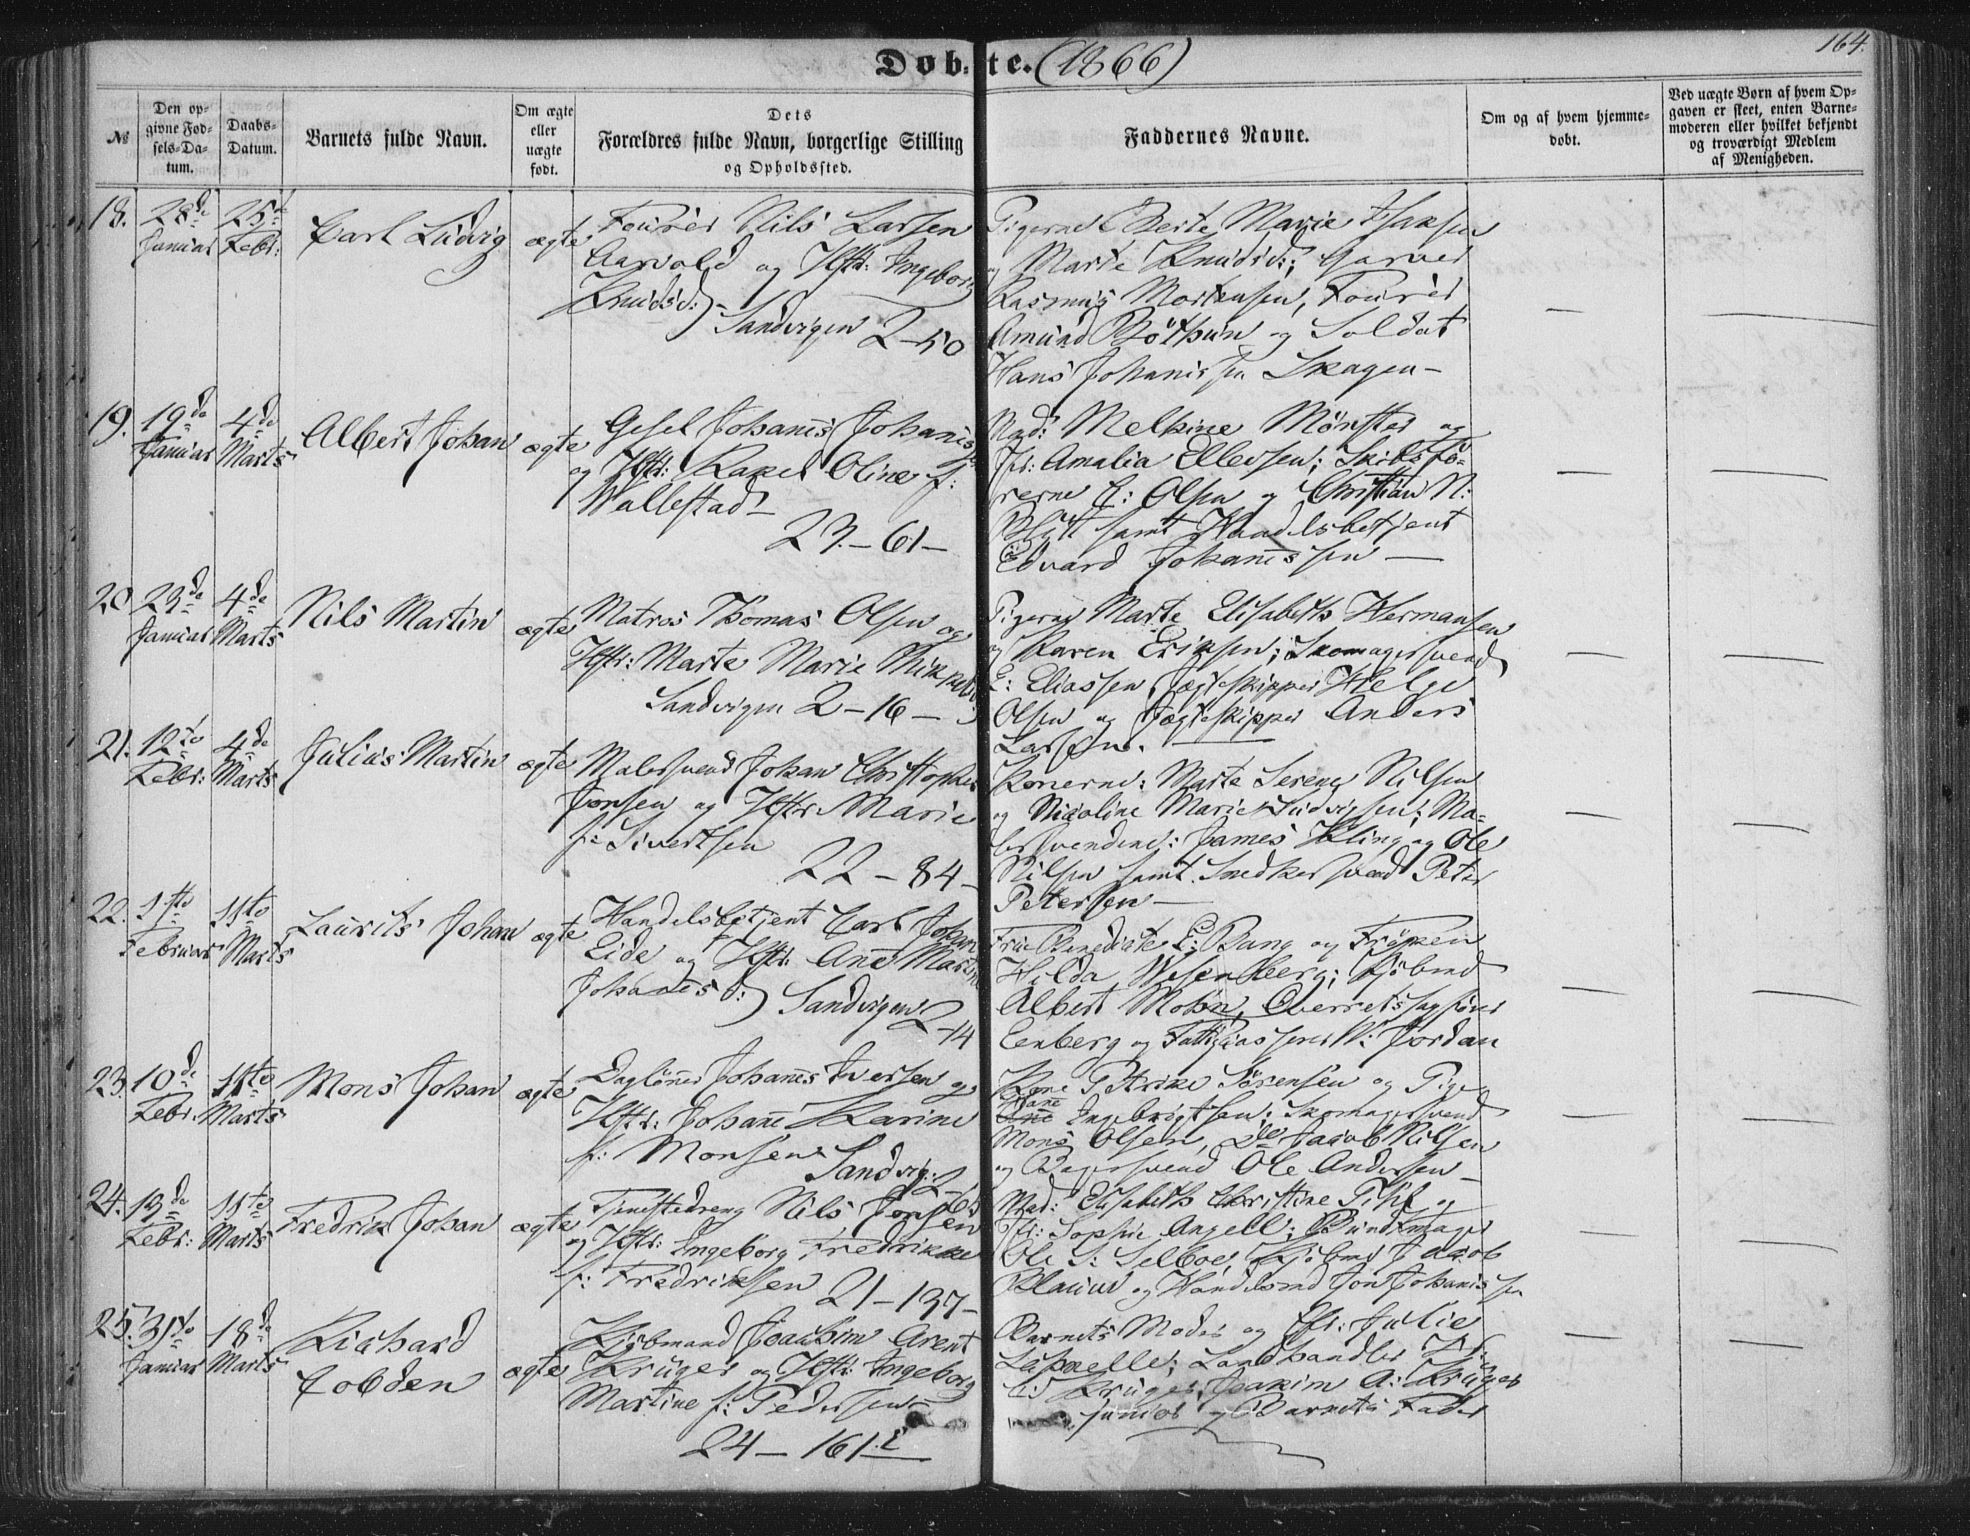 164.
Døbte. (1866)
№
Den opgivne Fødsels-Datum.
Daabs-Datum.
Barnets fulde Navn.
Om ægte eller uægte født.
Dets Forældres fulde Navn, borgerlige Stilling og Opholdssted.
Faddernes Navne.
Om og af hvem hjemmedøbt.
Ved uægte Børn af hvem Opgaven er skeet, enten Barnemoderen eller hvilket bekjendt og troværdigt Medlem af Menigheden.
18. 28de Januar 25t Febr: Carl Ludvig ægte
Fourér Nils Larsen
Aarvold og Hstr: Ingeborg
Knudsd:
Sandvigen 2-50
Pigerne Berte Marie Isaksen
og Marte Knudsd:; Garver
Rasmus Mortensen, Fourér
Amund Böthun og Soldat
Hans Johannissen Skagen —
19. 19de Januar 4de Marts Albert Johan ægte
Gesel Johans Johans
og Hstr: Rakel Oline f:
Wallestad
23.-61-
Mad: Melkine Mønster og
Jfr: Amalia Ellevsen; Skibsfö-
rerne E: Olsen og Christian N:
Blytt samt Handelsbetjent
Edvard Johannssen —
20. 23de Januar 4de Marts Nils Martin ægte
Matros Thomas Olsen og
Hstr: Marte Marie
Sandvigen 2-16-
Pigerne Marte Elisabeth Hermansen
og Karen Eriksen; Skomagersvend
E: Eliassen, Jægteskipper Helge
Olsen og Jægteskipper Anders
Larssen.
21. 12te Febr: 4de Marts Julius Martin ægte
Malersvend Johan Christopher
Jonsen og Hstr: Marie
f: Sivertsen
22-84-
Konerne: Marte Serene Nilsen
og Nicoline Marie Ludvigsen; Ma-
lersvendene: James Kling og Ole
Nilsen samt Snedkersvend Peter
Petersen —
22. 1ste Februar 11te Marts Laurits Johan ægte
Handelsbetjent Carl Johan
Eide og Hstr: Ane Martine
Johanes:
Sandvigen 2-14
Frue Benedicte E: Bang og Frøken
Hilda Wesenberg; Kjöbmd
Albert Mohn, Overretssagförer
Eenberg og W: Jordan
23. 10de Febr. 11te Marts Mons Johan ægte
Daglöner Johanes Iversen og
Hstr: Johane Karine
f: Monsen
Sandvig:
Kone Petrike Sörensen og Pige
Hane
Ane Ingebrigtsen; Skomagersvend
Mons Olsen, Do Jacob Nilsen
og Bagersvend Ole Andersen —
24. 13de Febr: 11te Marts Fredrik Johan ægte
Tjenestedreng Nils Jonsen
og Hstr: Ingeborg Fredrikke
f: Fredriksen
21-137-
Mad: Elisabeth Christine Pihl og
Jfr: Sophie Angell; Bundtmager
Ole S: Selboe, Kjöbmd Jacob
Blauuw og Handelsmd Jon Johanissen
25. 31te Januar 18de Marts Richard
Cobden ægte
Kjöbmand Joachim Arent
Krüger og Hstr: Ingeborg
Martine f: Pedersen
24-161.
Barnets Moder og Jfr: Julie
Lapnelle; Landhandler H:
C: Krüger, Joakim A: Krüger
junior og Barnets Fader